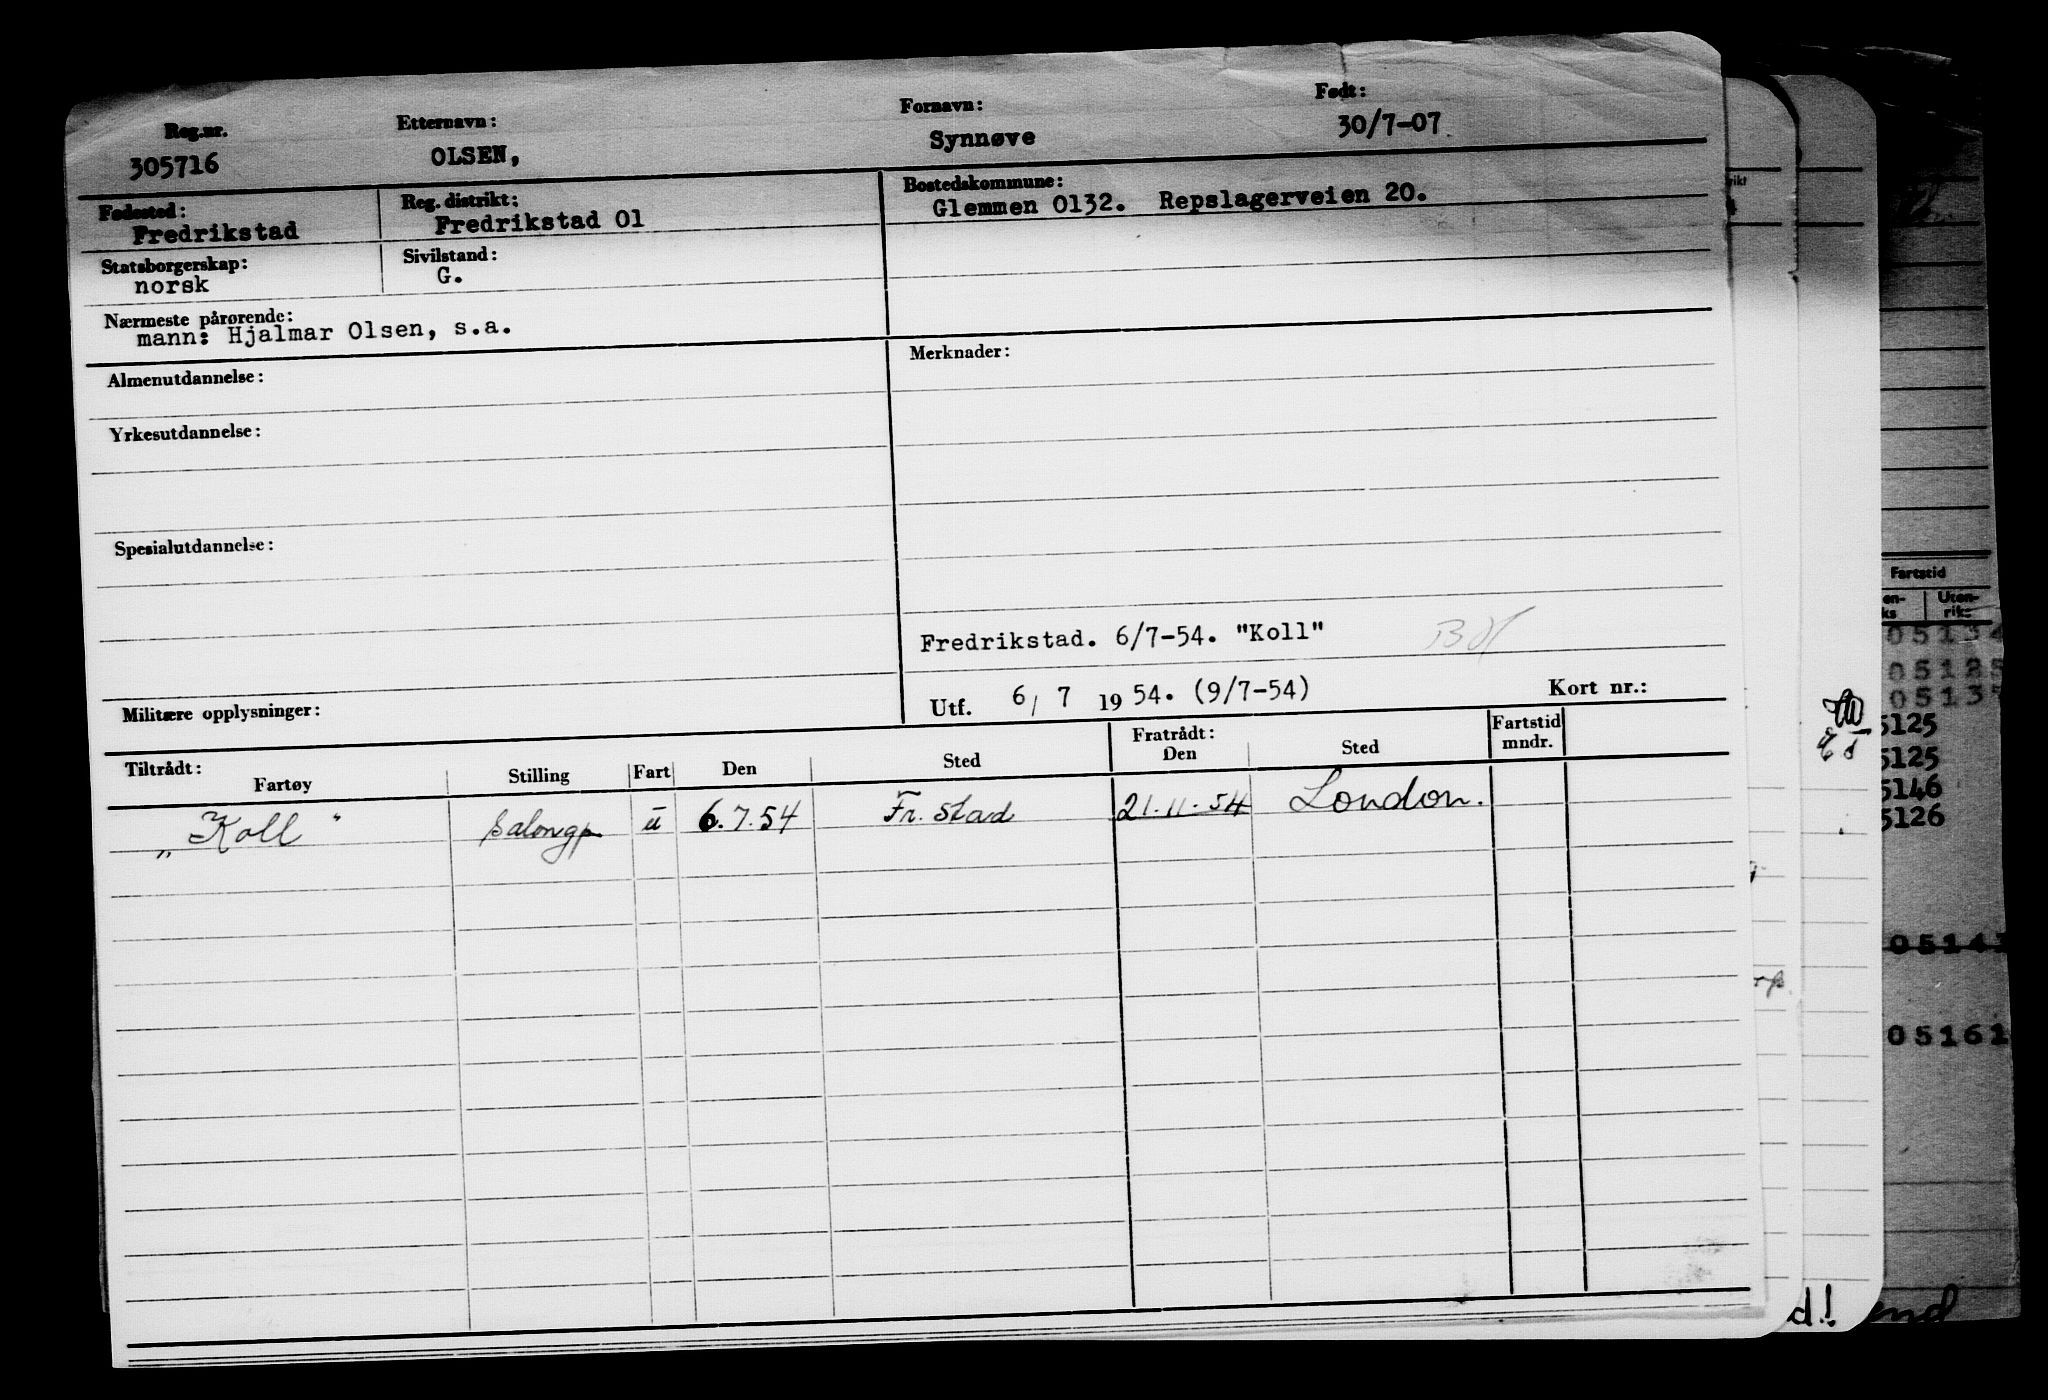 Reg.nr. Etternavn: Fornavn: Født:
305716 OLSEN, Synnøve 30/7-07
Fødested: Reg. distrikt: Bostedskommune:
Fredrikstad Fredrikstad 01 Glemmen 0132. Repslagerveien 20.
Statsborgerskap: Sivilstand:
norsk G.
Nærmeste pårørende:
mann: Hjalmar Olsen, s.a.
Almenutdannelse: Merknader:
Yrkesutdannelse:
Spesialutdannelse:
Fredrikstad. 6/7-54. "Koll"
Militære opplysninger: Utf. 6/ 7 19 54. (9/7-54) Kort nr.:
Tiltrådt: Fratrådt: Fartstid
Fartøy Stilling Fart Den Sted Den Sted mndr.
„Koll" Salongp u 6.7.54 Fr.stad 21.11.54 London.
Fartstid
en- Uten-
ks riks
05134
05125
05137
5125
5125
5146
5126
05143
05161
d! end